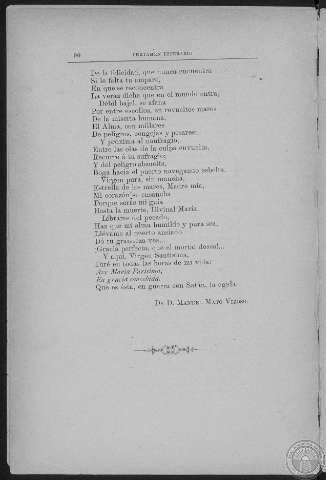 CERTAMEN LITERARIO
De la felicidad, que nunca encuentra
Si le falta tu amparo,
En que se reconcentra
La veraz dicha que en el mundo entra;
Débil bajel, se afana
Por entre escollos, en revueltos mares
De la miseria humana,
El Alma, con millares
De peligros, congojas y pesares:
Y próxima al naufragio,
Entre las olas de la culpa envuelta,
Recurre á tu sufragio,
Y del peligro absuelta,
Boga hacia el puerto navegando resuelta.
Virgen pura, sin mancha,
Estrella de los mares, Madre mía,
Mi corazón
Porque serás mi guía
Hasta la muerte, Divinal María.
Líbrame del pecado,
Haz que mi alma humilde y pura sea,
Llévame al puerto ansiado
Do tu gracia
Gracia perfecta, que el mortal desea!..
Y aquí, Virgen Santísima,
Diré en todas las horas de mi vida:
Ave María Purísima,
En gracia concebida,
Que es ésta, en guerra con Satán, tu égida.
DE D. MANUEL MATO VIZOSO.